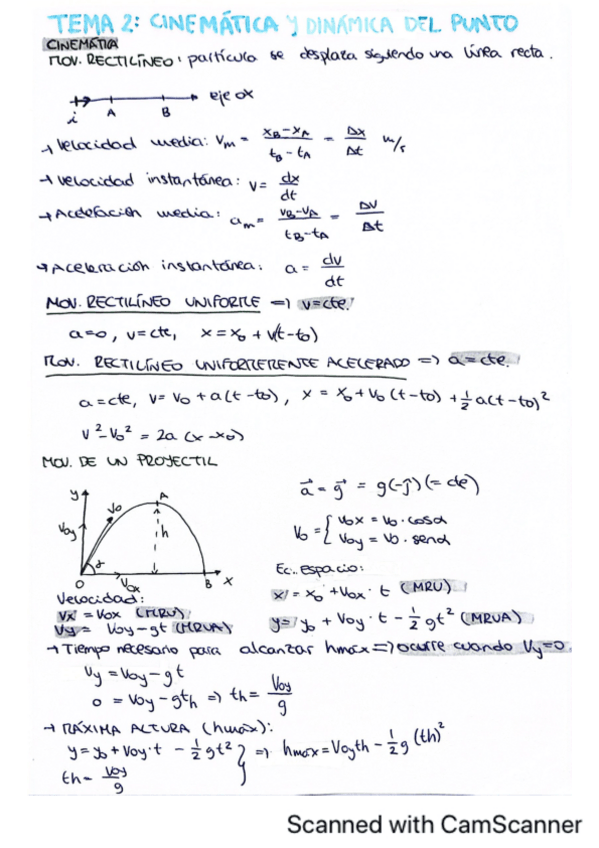 TEMA 2: CINEMÁTICA Y DINÁMICA DEL PUNTO
CINEMÁTIA
MOV. RECTILÍNEO: partícula se desplaza siguiendo una línea recta.
i A B eje ox
→ Velocidad media: Vm = (xB-xA)/(tB-tA) = Δx/Δt m/s
→ Velocidad instantánea: v = dx/dt
→ Aceleración media: am = (vB-vA)/(tB-tA) = ΔV/Δt
→ Aceleración instantánea: a = dv/dt
MOV. RECTILÍNEO UNIFORME => v=cte.
a=0, v=cte, x=x0 + v(t-t0)
MOV. RECTILÍNEO UNIFORMEMENTE ACELERADO => a=cte.
a=cte, v= v0 + a(t-t0), x = x0+v0(t-t0) + 1/2 a(t-t0)²
v²-v0² = 2a (x-x0)
MOV. DE UN PROYECTIL
y Voy V0 α A h O Vox B X
a = g = g(-j) (= cte)
V0 = { V0x = V0 · cosα
V0y = V0 · senα
Ec. espacio:
x = x0 + V0x · t (MRU)
y = y0 + Voy · t - 1/2 gt² (MRUA)
Velocidad:
Vx = Vox (MRU)
Vy = Voy-gt (MRUA)
→ Tiempo necesario para alcanzar hmáx => ocurre cuando Vy=0.
Vy = Voy-gt
0 = Voy-gth => th = Voy/g
→ MÁXIMA ALTURA (hmáx):
y = y0 + Voy·t - 1/2 gt² } => hmáx = Voyth - 1/2 g (th)²
th = Voy/g
Scanned with CamScanner